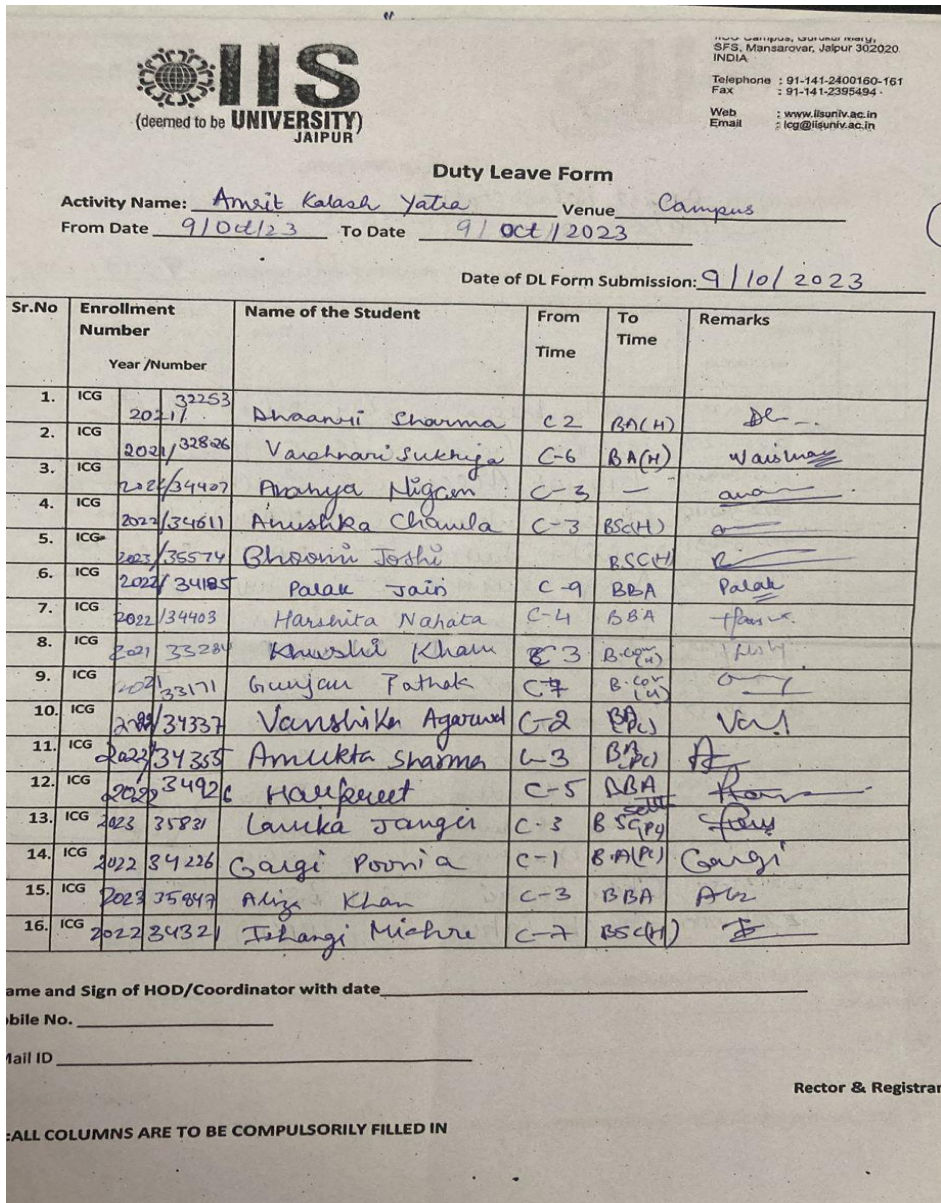 IIS
(deemed to be UNIVERSITY)
JAIPUR
SFS, Mansarovar, Jaipur 302020
INDIA
Telephone : 91-141-2400160-161
Fax : 91-141-2395494
Web : www.iisuniv.ac.in
Email : icg@iisuniv.ac.in
Duty Leave Form
Activity Name: Amrit Kalash Yatra Venue Campus
From Date 9/Oct/23 To Date 9/Oct/2023
Date of DL Form Submission: 9/10/2023
Sr.No Enrollment Number Year /Number Name of the Student From Time To Time Remarks
1. ICG 2021/ 32253 Dhaanvi Sharma C2 BA(H)
2. ICG 2021/32826 Vaishnavi Sukhija C-6 BA(H)
3. ICG /34407 Nigam C-3 -
4. ICG 2022/34611 Anushka Chawla C-3 BSc(H)
5. ICG 2023/35574 Bhoomi Joshi BSC(H)
6. ICG 2022/34185 Palak Jain C-9 BBA Palak
7. ICG 2022/34403 Harshita Nahata C-4 BBA
8. ICG 2021 33284 Khushi Kham C3 B.com(H)
9. ICG 2021/33171 Gunjan Pathak B.com(H)
10. ICG /34337 Vanshika Agarwal C-2 BA(Pc)
11. ICG /34355 Amukta Sharma C-3 BA(Pc)
12. ICG 2022 34926 Harpreet C-5 BBA
13. ICG 2023 35831 Lavika Jangir C-3
14. ICG 2022 34226 Gargi Poonia C-1 B.A(Pc) Gargi
15. ICG 2023 35847 Aliza Khan C-3 BBA
16. ICG 2022 34321 Ishangi Mishre C-7 BSC(H)
ame and Sign of HOD/Coordinator with date
bile No.
Mail ID
Rector & Registrar
:ALL COLUMNS ARE TO BE COMPULSORILY FILLED IN